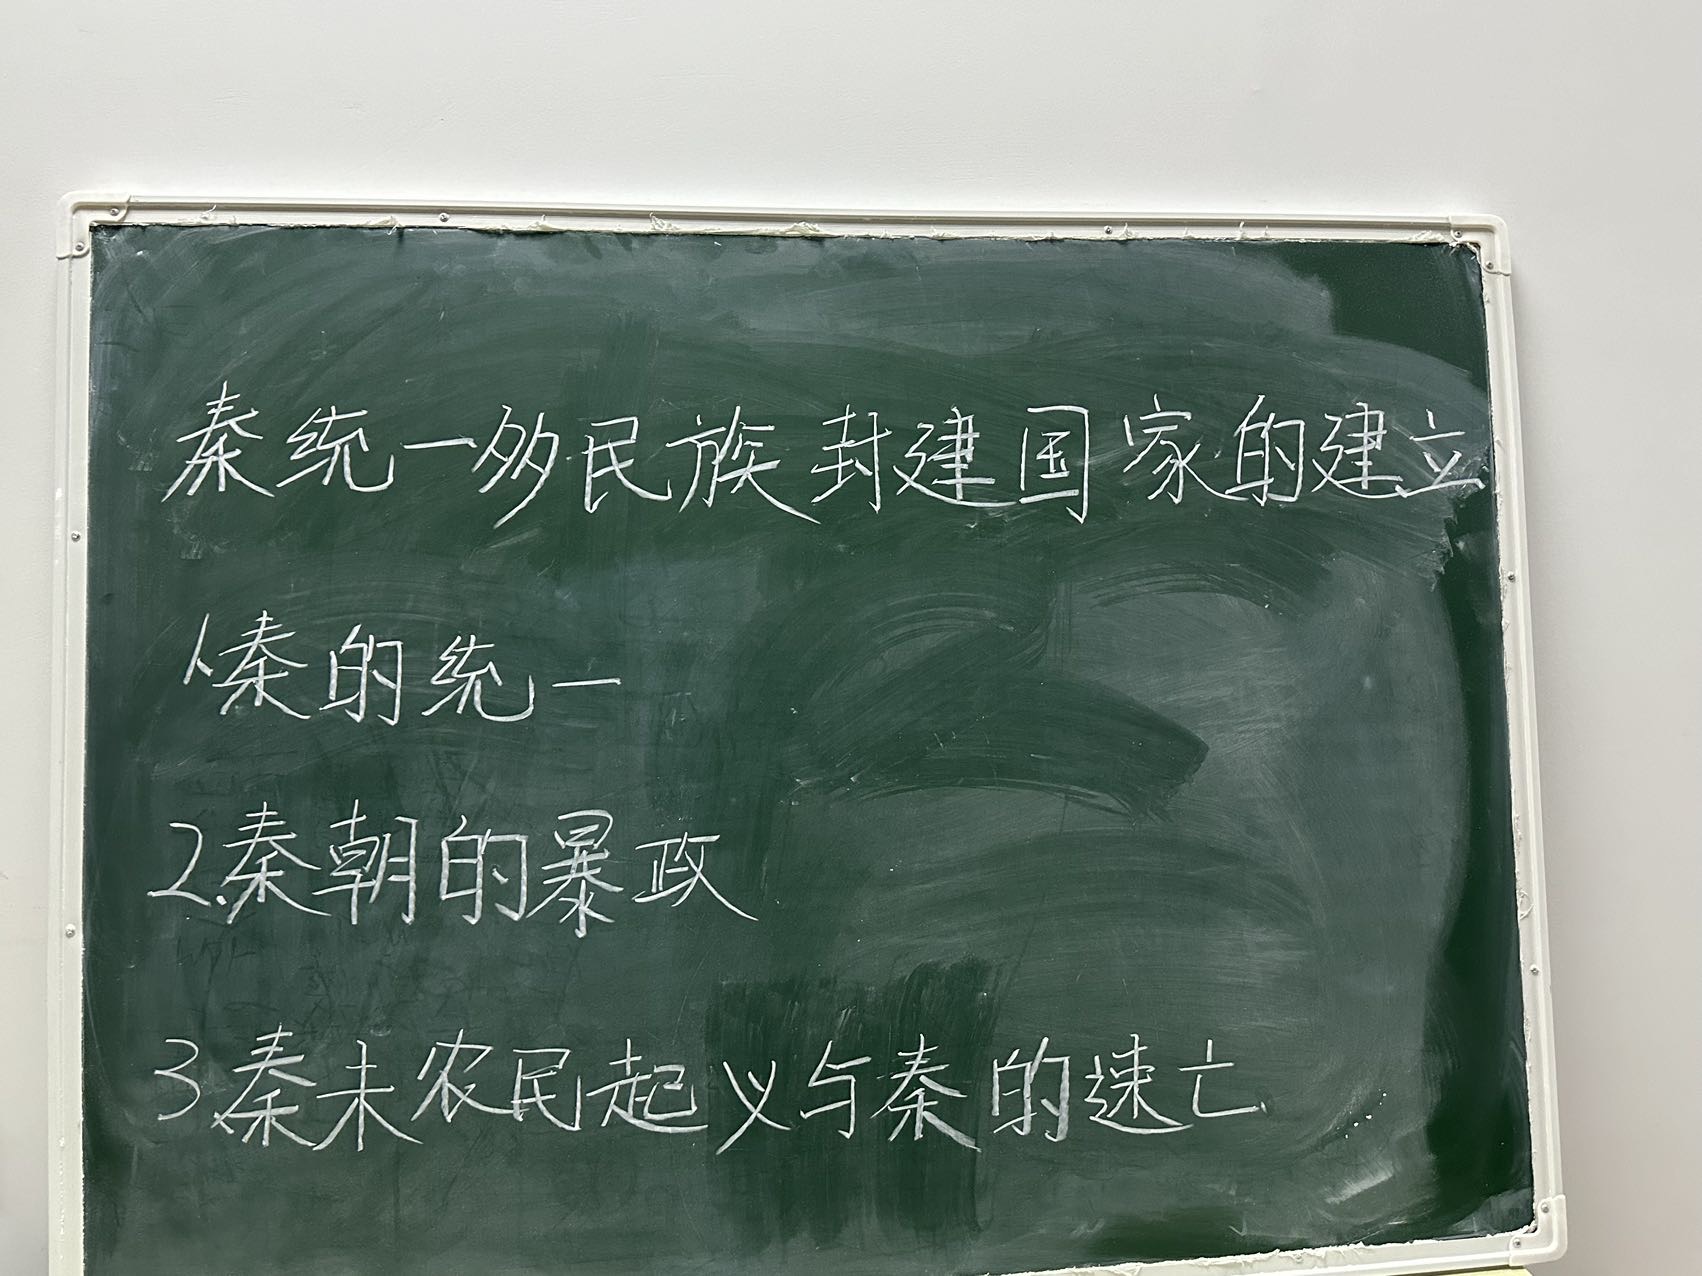 秦统一多民族封建国家的建立
1.秦的统一
2.秦朝的暴政
3.秦末农民起义与秦的速亡